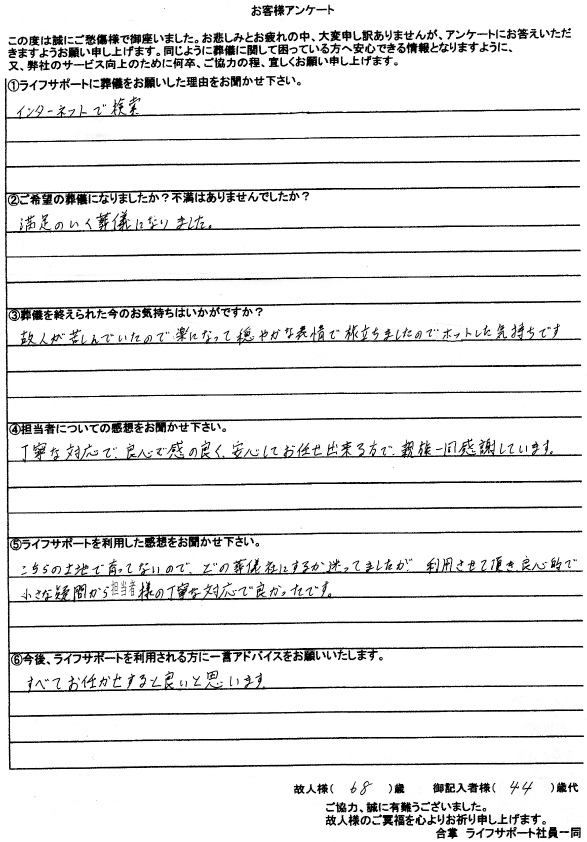 お客様アンケート
この度は誠にご愁傷様で御座いました。お悲しみとお疲れの中、大変申し訳ありませんが、アンケートにお答えいただ
きますようお願い申し上げます。同じように葬儀に関して困っている方へ安心できる情報となりますように、
又、弊社のサービス向上のために何卒、ご協力の程、宜しくお願い申し上げます。
①ライフサポートに葬儀をお願いした理由をお聞かせ下さい。
インターネットで検索
②ご希望の葬儀になりましたか？不満はありませんでしたか？
満足のいく葬儀になりました。
③葬儀を終えられた今のお気持ちはいかがですか？
故人が苦しんでいたので楽になって穏やかな表情で旅立ちましたのでホットした気持ちです
④担当者についての感想をお聞かせ下さい。
丁寧な対応で、良心で感の良く、安心してお任せ出来る方で、親族一同感謝しています。
⑤ライフサポートを利用した感想をお聞かせ下さい。
こちらの土地で育ってないので、どの葬儀社にするか迷ってましたが、利用させて頂き良心的で
小さな疑問から担当者様の丁寧な対応で良かったです。
⑥今後、ライフサポートを利用される方に一言アドバイスをお願いいたします。
すべてお任かせすると良いと思います。
故人様（ 68 ）歳 御記入者様（ 44 ）歳代
ご協力、誠に有難うございました。
故人様のご冥福を心よりお祈り申し上げます。
合掌 ライフサポート社員一同